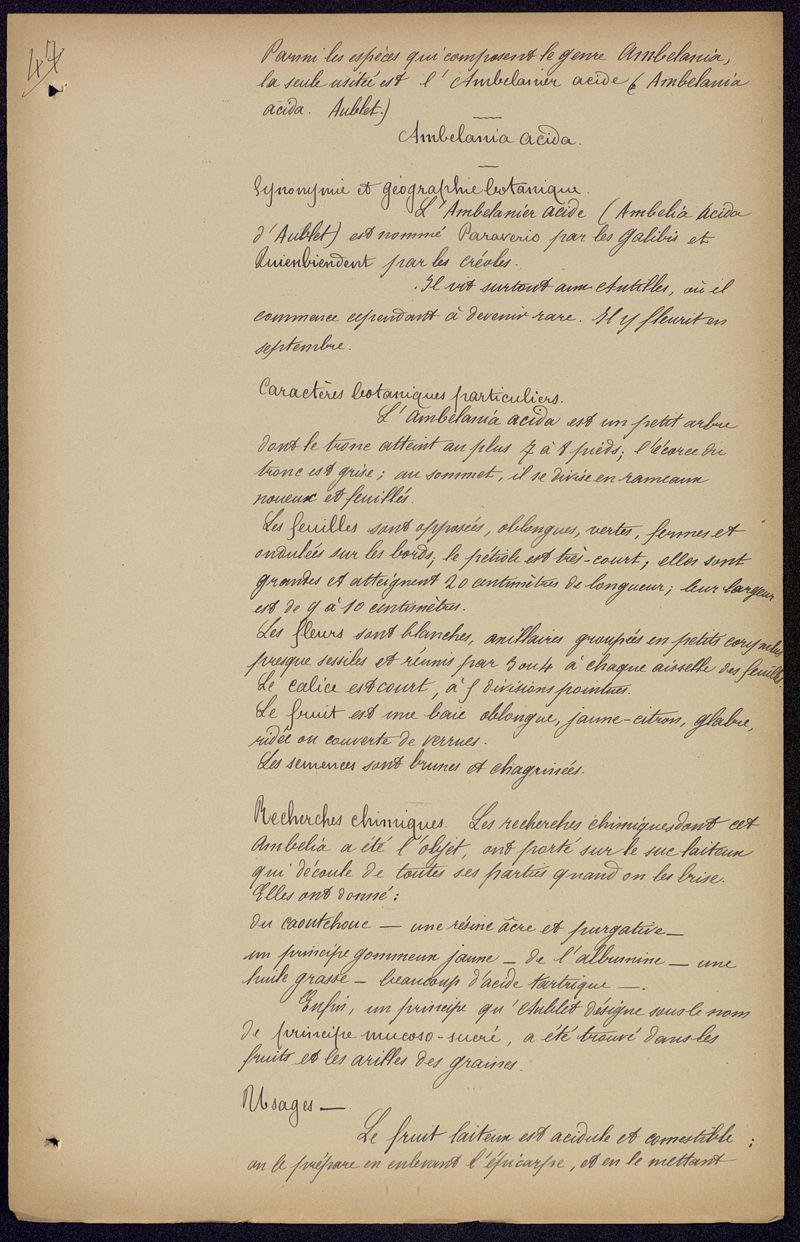 47
Parmi les espèces qui composent le genre Ambelania,
la seule usitée est l'Ambelanier acide (Ambelania
acida. Aublet.)
Ambelania acida.
Synonymie et géographie botanique.
L'Ambelanier acide (Ambelia acida
d'Aublet) est nommé Paraverio par les Galibis et
Quienbiendent par les créoles.
Il vit surtout aux Antilles, où il
commence cependant à devenir rare. Il y fleurit en
septembre.
Caractères botaniques particuliers.
L'ambelania acida est un petit arbre
dont le tronc atteint au plus 7 à 8 pieds; l'écorce du
tronc est grise; au sommet, il se divise en rameaux
noueux et feuillés.
Les feuilles sont opposées, oblongues, vertes, fermes et
ondulées sur les bords; le pétiole est très-court; elles sont
grandes et atteignent 20 centimètres de longueur; leur largeur
est de 9 à 10 centimètres.
Les fleurs sont blanches, axillaires groupées en petits corymbes
presque sessiles et réunis par 3 ou 4 à chaque aisselle des feuilles.
Le calice est court, à 5 divisions pointues.
Le fruit est une baie oblongue, jaune-citron, glabre,
ridée ou couverte de verrues.
Les semences sont brunes et chagrinées.
Recherches chimiques. Les recherches chimiques dont cet
Ambelia a été l'objet, ont porté sur le suc laiteux
qui découle de toutes ses parties quand on les brise.
Elles ont donné :
du caoutchouc — une résine âcre et purgative —
un principe gommeux jaune — de l'albumine — une
huile grasse — beaucoup d'acide tartrique —.
Enfin, un principe qu'Aublet désigne sous le nom
de principe mucoso-sucré, a été trouvé dans les
fruits et les arilles des graines.
Usages —
Le fruit laiteux est acidule et comestible :
on le prépare en enlevant l'épicarpe, et en le mettant